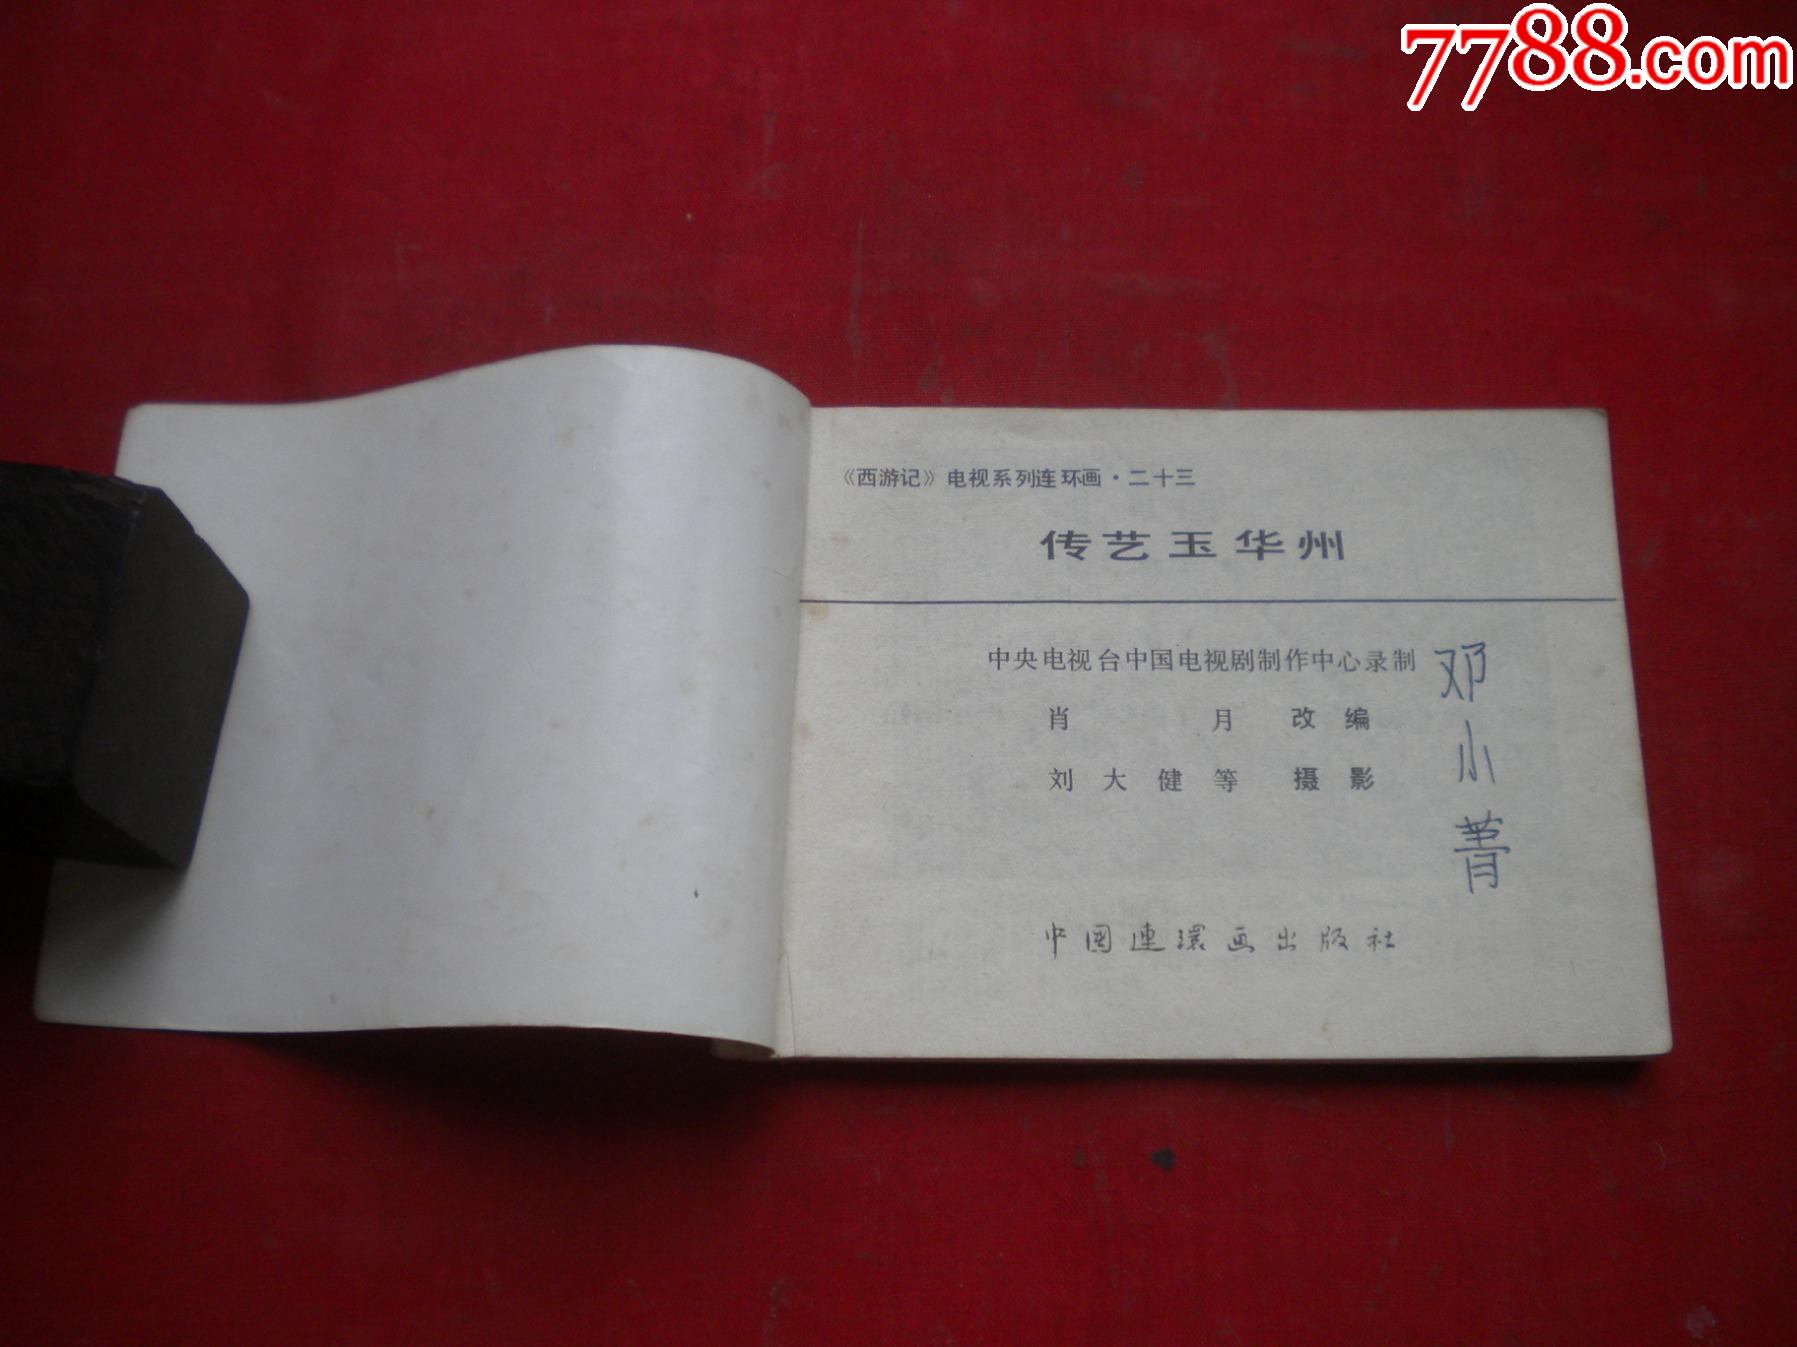 7788.com
《西游记》电视系列连环画·二十三
传艺玉华州
中央电视台中国电视剧制作中心录制
肖月 改编
刘大健等 摄影
中国連環画出版社
邓小菁